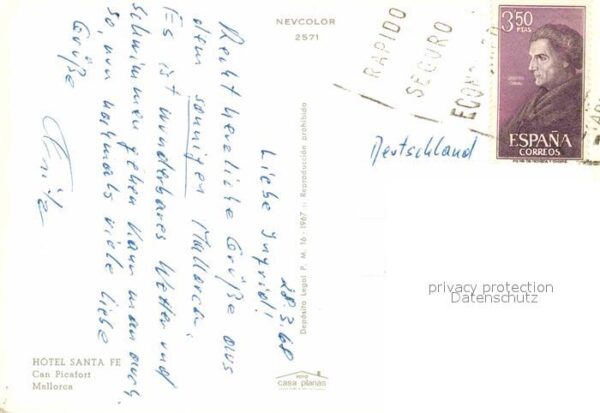 NEVCOLOR
2571
28.3.68
Liebe Ingrid!
Recht herzliche Grüße aus
dem sonnigen Mallorca.
Es ist wunderbares Wetter und
schwimmen gehen kann man auch.
So, nun nochmals viele liebe
Grüße
HOTEL SANTA FE
Can Picafort
Mallorca
Depósito Legal P. M. 16 - 1967 :: Reproducción prohibida
FOTO
casa planas
RAPIDO
SEGURO
3,50
PTAS
ESPAÑA
CORREOS
Deutschland
privacy protection
Datenschutz